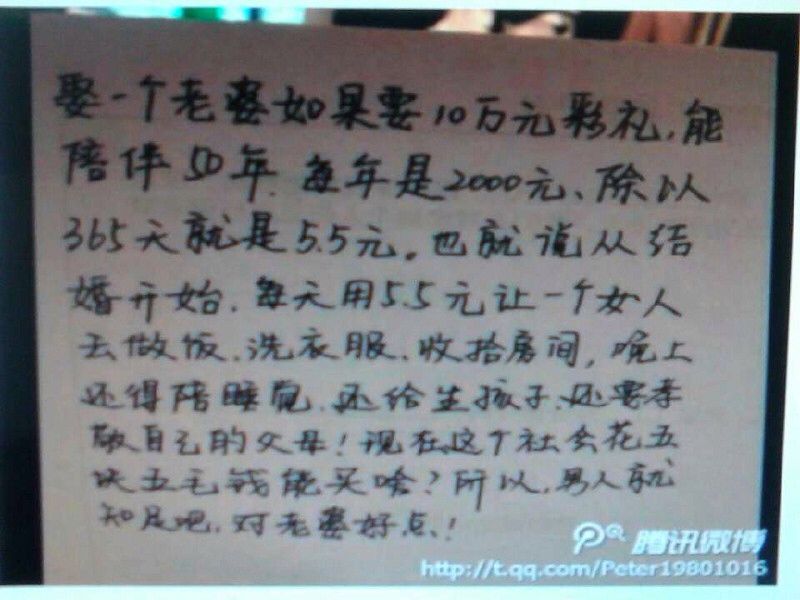 娶一个老婆如果要10万元彩礼,能
陪伴50年.每年是2000元、除以
365天就是5.5元。也就说从结
婚开始.每天用5.5元让一个女人
去做饭.洗衣服.收拾房间,晚上
还得陪睡觉.还给生孩子.还要孝
敬自己的父母!现在这个社会花五
块五毛钱能买啥?所以.男人就
知足吧.对老婆好点!
腾讯微博
http://t.qq.com/Peter19801016